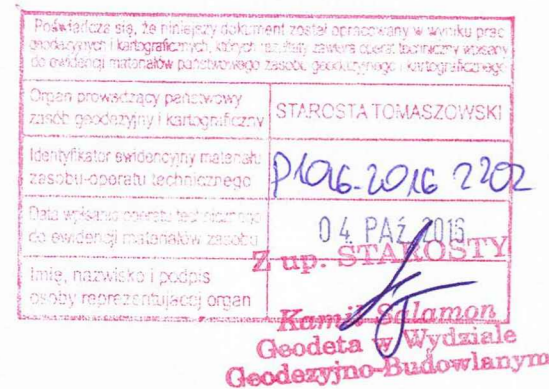 Poświadcza się, że niniejszy dokument został opracowany w wyniku prac
geodezyjnych i kartograficznych, których rezultaty zawiera operat techniczny wpisany
do ewidencji materiałów państwowego zasobu geodezyjnego i kartograficznego
Organ prowadzący państwowy
zasób geodezyjny i kartograficzny
STAROSTA TOMASZOWSKI
Identyfikator ewidencyjny materiału
zasobu-operatu technicznego
P.1016.2016 2202
Data wpisania operatu technicznego
do ewidencji materiałów zasobu
04 PAŹ 2016
Z up. STAROSTY
Imię, nazwisko i podpis
osoby reprezentującej organ
Kamil Salamon
Geodeta w Wydziale
Geodezyjno-Budowlanym